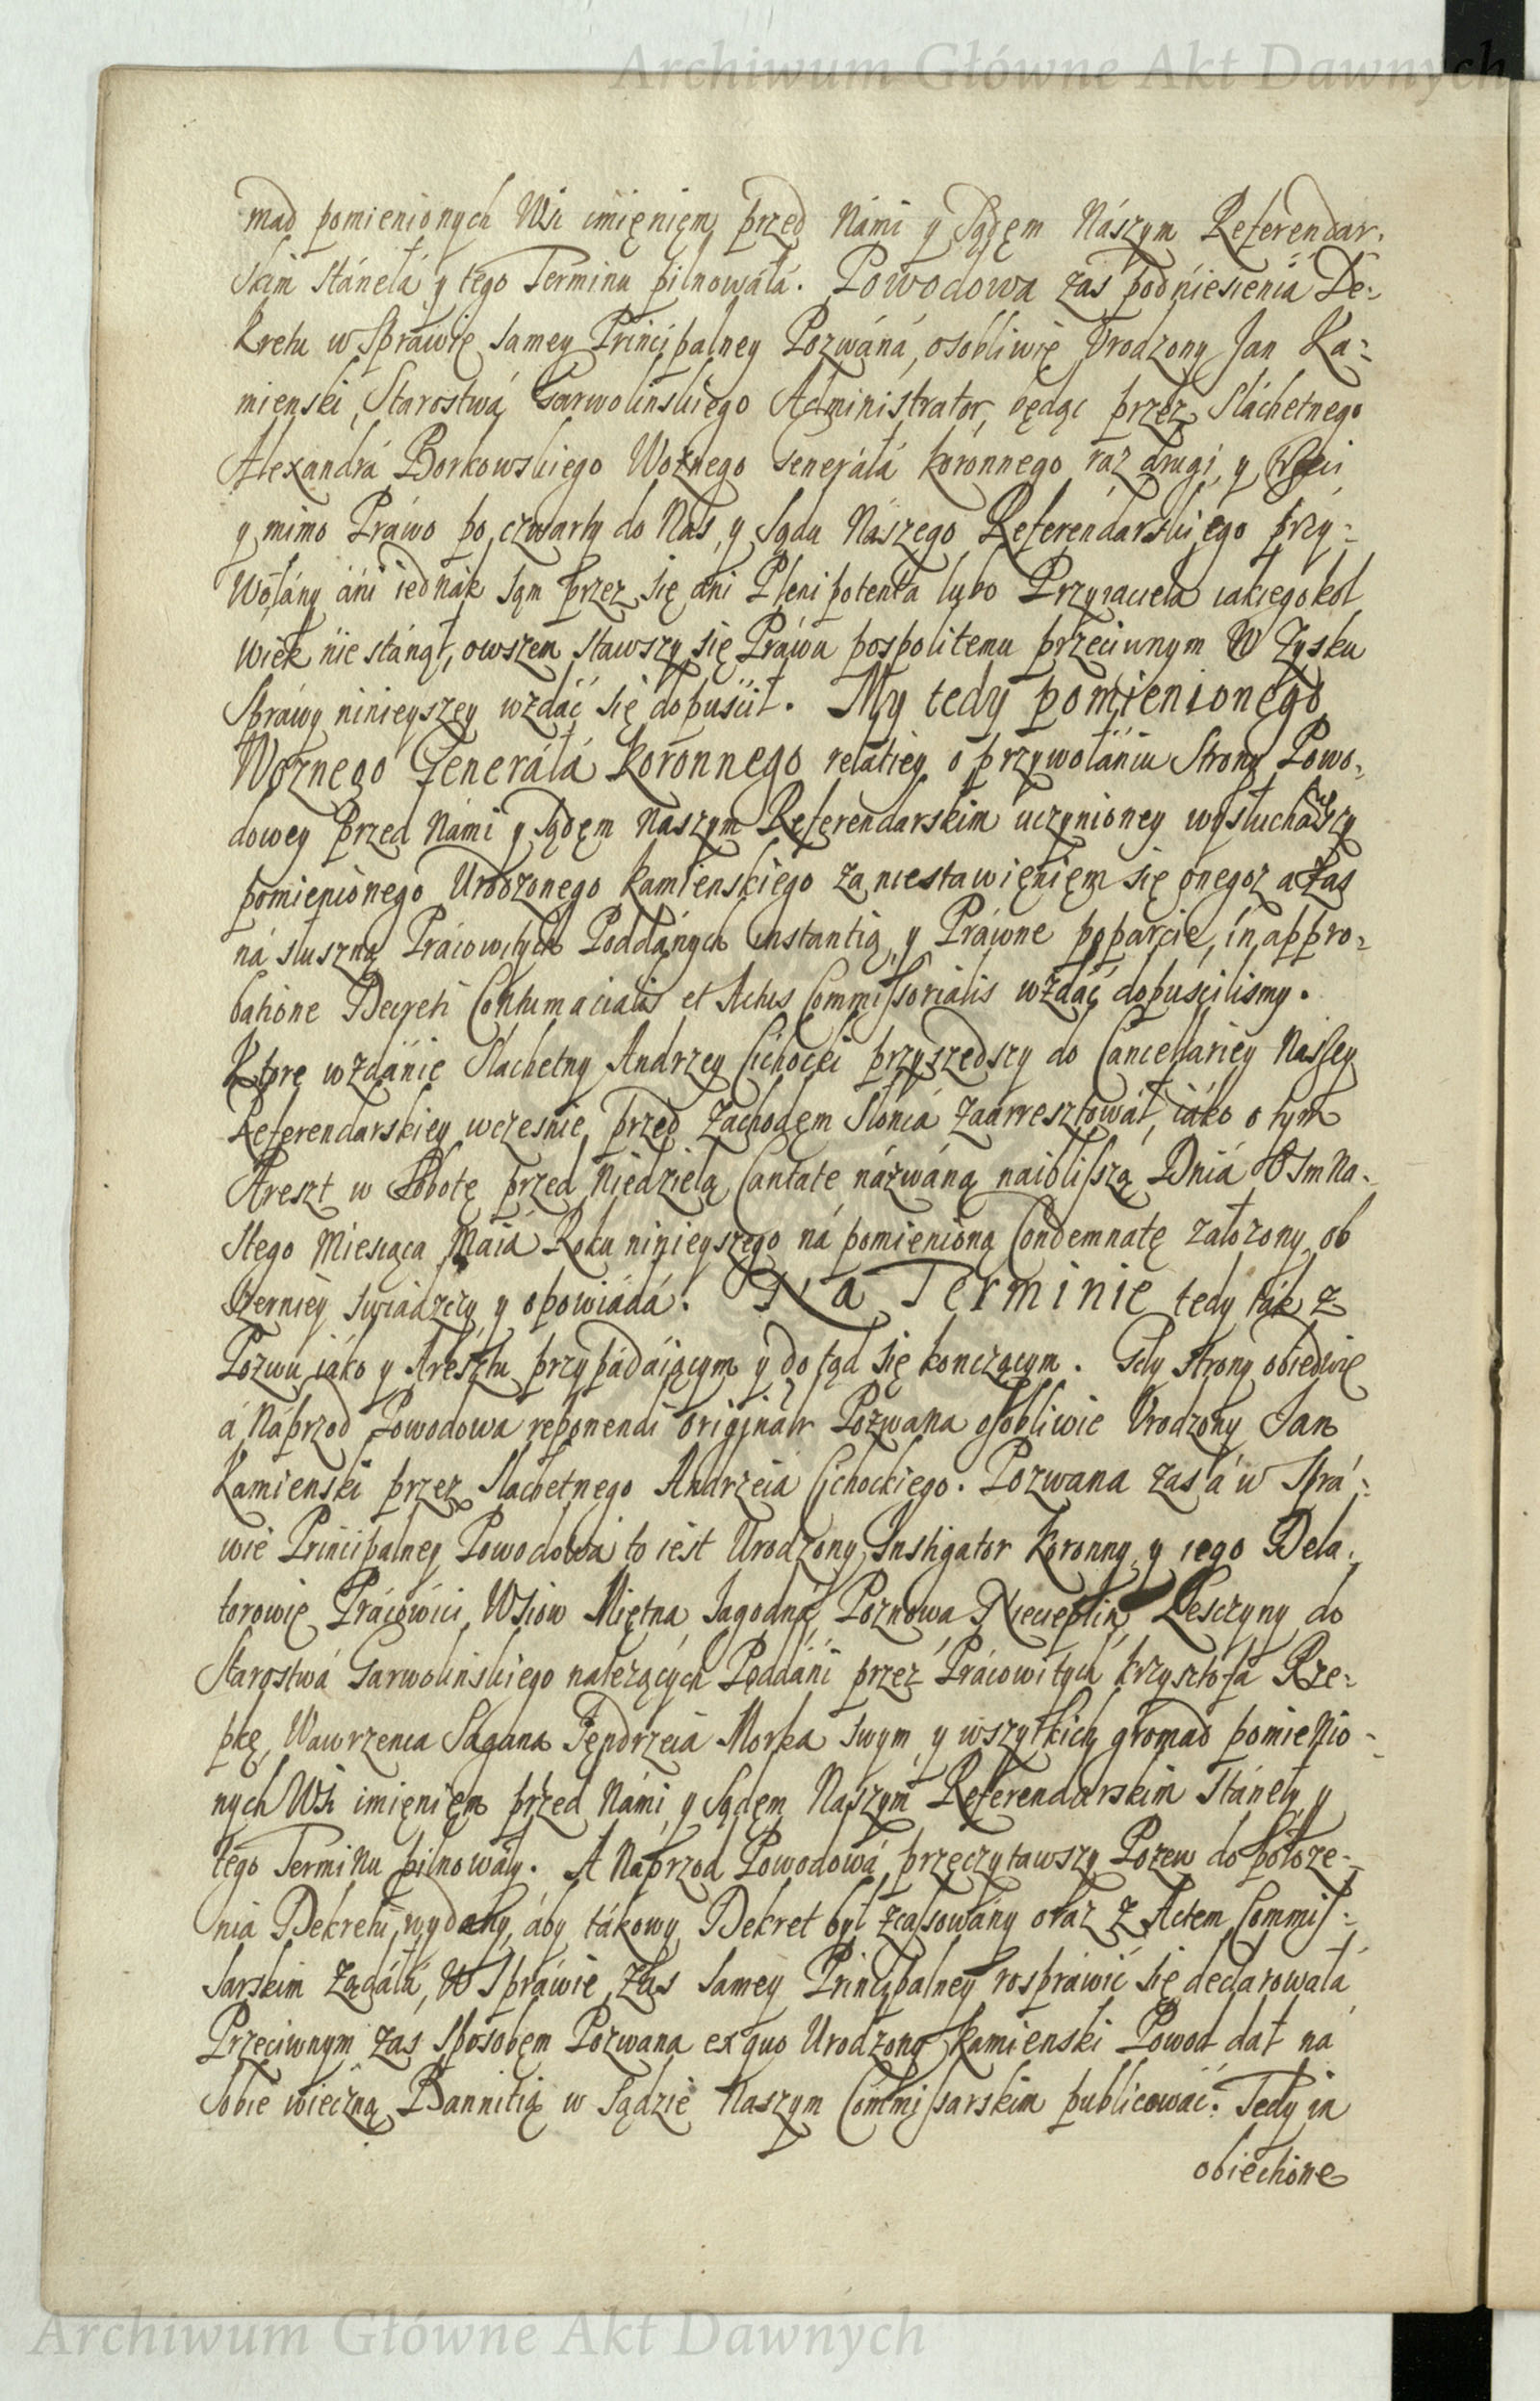 Archiwum Główne Akt Dawnych
mad pomienionych Wsi imięnięm przed Námi y Sądęm Nászym Referendar-
skim stáneła y tego Terminu pilnowáłá. Powodowa zas podniesienia De-
kretu w Sprawie samey Principalney Pozwáná, osobliwie Vrodzony Jan Ka-
mienski, Starostwá Garwolinskiego Administrator, będąc przez Sláchetnego
Alexandrá Borkowskiego Woznego Generáłá koronnego raz drugi, y trzeci
y mimo Práwo po czwarty do Nas, y Sądu Nászego Referendárskiego przy-
wołány áni iednák sąm przez się áni Plenipotenta lubo Przyiaciela iakiegokol
wiek nie stánął, owszem stawszy się Práwu pospolitemu przeciwnym W Zysku
Spráwy ninieyszey wzdáć się dopuścił. My tedy pomienionego
Woznego Generáłá koronnego relátiey o przywołániu Strony Powo-
dowey przed Námi y Sądęm Naszym Referendarskim uczynioney wysłuchawszy
pomienionego Urodzonego Kamienskiego za niestawięnięm się onegoz a zas
ná słuszną Prácowitych Poddánych instantią, y Práwne poparcie, in appro-
batione Decreti Contumacialis et Actus Commissorialis wzdáć dopuścilismy.
Ktore wzdánie Sláchetny Andrzey Cichocki przyszedszy do Cancellariey Nassey
Referendarskiey wczesnie przed Zachodęm Słoncá zaarresztowáł, iáko o tym
Areszt w Sobotę przed Niedzielą Cantate názwáną naiblisszą Dniá Osmna-
stego Miesiąca Maiá Roku ninieyszego ná pomienioną Condemnatę załozony, ob
szerniey swiádczy y opowiádá. Na Terminie tedy ták z
Pozwu iáko y Aresztu przypádáiącym y do tąd się konczącym. Gdy strony obiedwie
á Naprzod Powodowa reponendi originalr Pozwana osobliwie Vrodzony Jan
Kamienski przez Slachetnego Andrzeiá Cichockiego. Pozwana zas á w Sprá-
wie Principalney Powodowa to iest Urodzony Instigator Koronny y iego Dela-
torowie Prácowici Wsiow Miętna, Jagodná, Poznowa Niecieplin Lesczyny do
Starostwá Garwolinskiego nalezących Poddáni przez Prácowitych Krzysztofa Rze-
pkę, Wawrzenca Sagana Jędrzeia Morka swym y wszytkich gromad pomienio-
nych Wsi imięnięm przed Námi y Sądęm Naszym Referendarskim stánęły y
tego Terminu pilnowáły. A Naprzod Powodowá przeczytawszy Pozew do połoze-
nia Dekretu wydány, áby tákowy Dekret był zcasowány oraz z Actem Commis-
sarskim ządáłá, W Spráwie zas samey Principalney rospráwić się declarowáłá
Przeciwnym zas Sposobęm Pozwana ex quo Urodzony Kamienski Powod dał ná
sobie wieczną Bannitią w Sądzie Naszym Commissarskim publicowáć. Tedy in
obiectione
Archiwum Główne Akt Dawnych